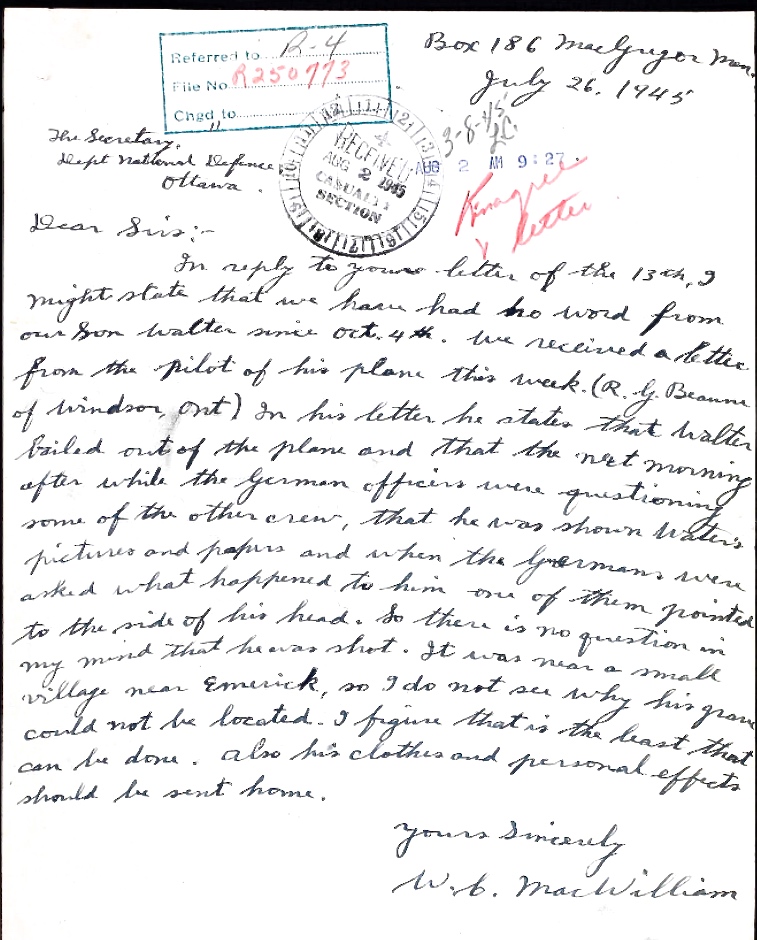 Box 186 MacGregor Man.
July 26, 1945
Referred to R-4
File No R250773
Chgd to "
The Secretary,
Dept National Defence,
Ottawa.
RECEIVED
AUG 2 1945
CASUALTY
SECTION
3-8-45
AUG 2 AM 9:27
letter
Dear Sirs:-
In reply to your letter of the 13th, I
might state that we have had no word from
our Son Walter since Oct. 4th. We received a letter
from the pilot of his plane this week. (R. G. Beaune
of Windsor, Ont) In his letter he states that Walter
bailed out of the plane and that the next morning
after while the German officers were questioning
some of the other crew, that he was shown Walter's
pictures and papers and when the Germans were
asked what happened to him one of them pointed
to the side of his head. So there is no question in
my mind that he was shot. It was near a small
village near Emerick, so I do not see why his grave
could not be located. I figure that is the least that
can be done. Also his clothes and personal effects
should be sent home.
Yours Sincerely
W. C. MacWilliam